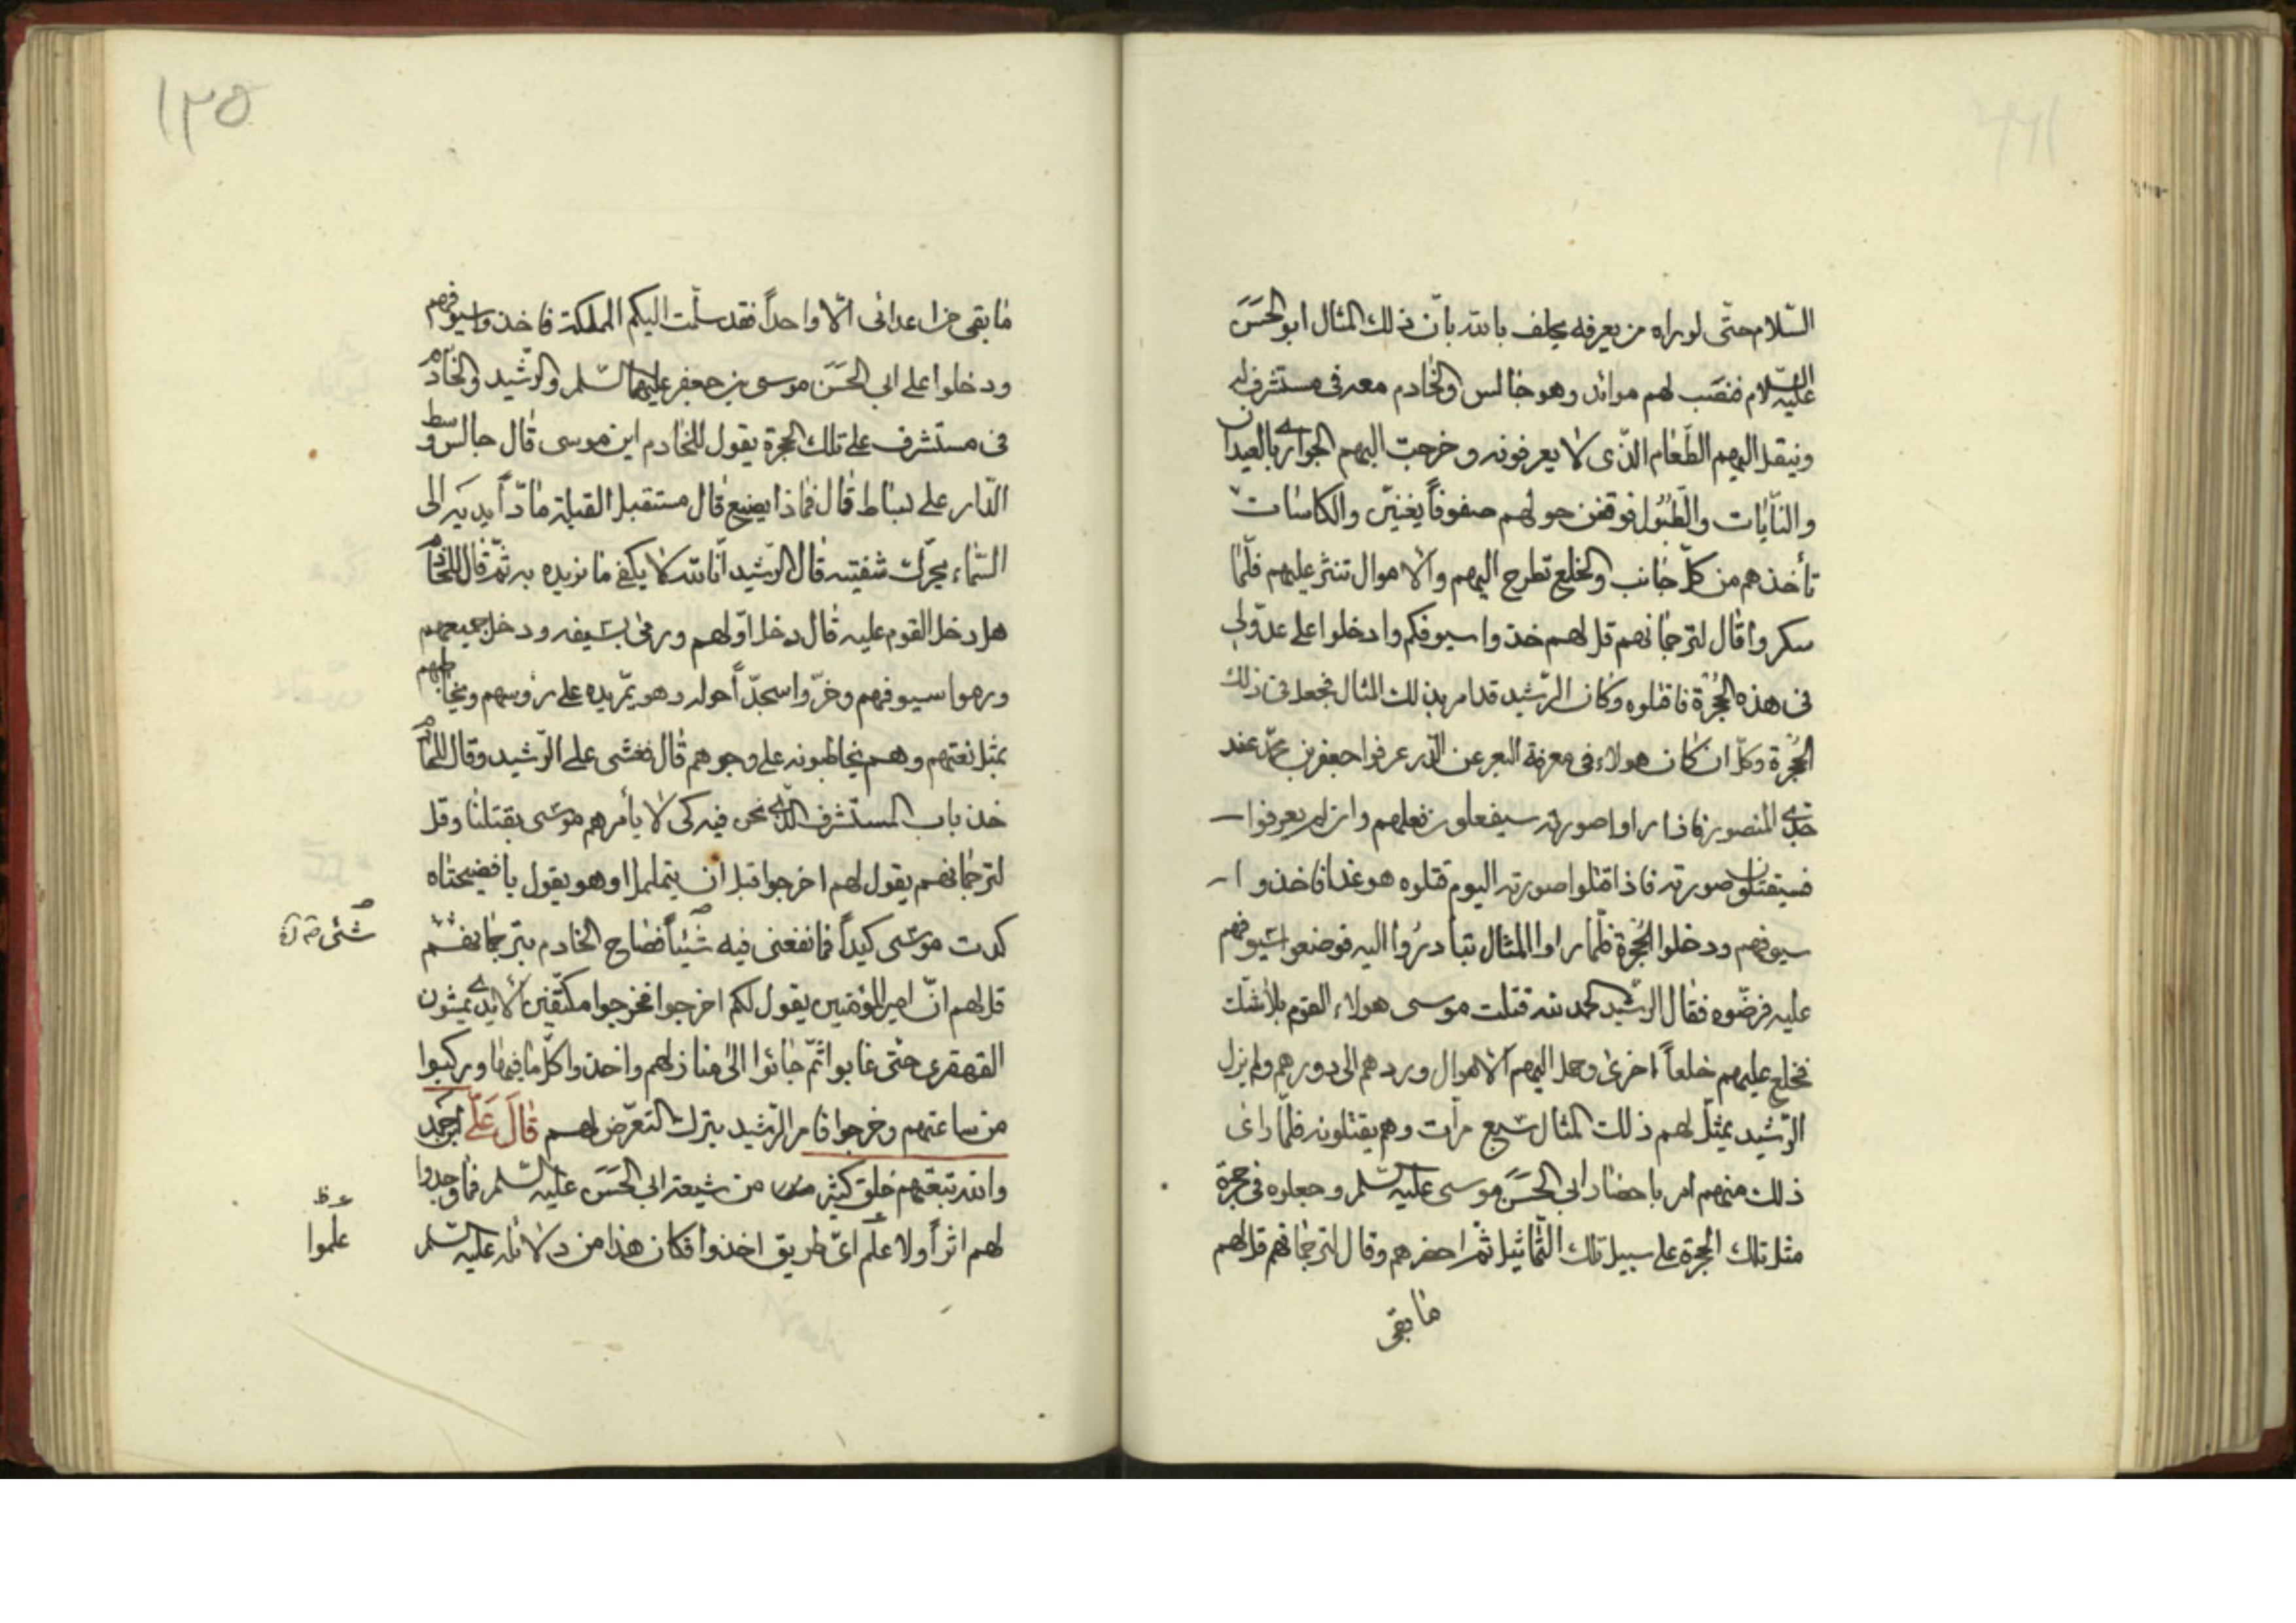 السّلام حتّى لو راه من يعرفه يحلف بالله بانّ ذلك المثال ابو الحَسَن
عليه السّلام فنصَب لهم موائد وهو جالس والخادم معه فى مستشرف له
وينقل اليهم الطّعام الذّى لا يعرفونه وخرجت اليهم الجوارى بالعيدان
والنّايات والطّبُول فوقفن حولهم صفوفاً يغنيّن والكاسات
تأخذهم من كلّ جانب والخلع تطرح اليهم والاموال تنثر عليهم فلّما
سكروا قال لترجمانهم قل لهم خذوا سيوفكم وادخلوا على عدّولى
فى هذه الحُجْرة فاقتلوه وكان الرّشيد قد امر بذلك المثال فجعل فى ذلك
الحُجْرة وكلّ ان كان هولاء فى معرفة عرفوا جعفر بن محمّد عند
جدّى المنصور فاذا راوا صورته سيفعلون فعلهم وان لم يعرفوا
فسيقتلون صورته فاذا قتلوا صورته اليوم قتلوه هو غدا فاخذوا
سيوفهم ودخلوا الحُجْرة فلّما راوا المثال تبادرُوا اليه فوضعوا سَيوفهم
عليه فرضّوه فقال الرّشيد الحمد لله قتلت موسى هولاء القوم بلا شكّ
فخلع عليهم خلعاً اخرى وحمل اليهم الاموال وردهم الى دورهم ولم يزل
الرّشيد يمثّل لهم ذلك المثال سَبع مرّات وهم يقتلونه فلّما راى
ذلك منهم امر باحضار ابى الحَسَن موسى عليه السّلم وجعلوه فى حجرة
مثل تلك الحجرة على سبيل تلك التّماثيل ثمّ احضرهم وقال لترجمانهم قل لهم
ما بقى
١٣٥
ما بقى من اعدائى الّا واحداً فقد سلّمت اليكم المملكة فاخذوا سيوفهم
ودخلوا على ابى الحَسَن موسى بن جعفر عليهما السّلم والرّشيد والخادم
فى مستشرف على تلك الحجرة يقول للخادم اين موسى قال جالس وسط
الدّار على بساط قال فماذا يصنع قال مستقبل القبلة مادّاً يديه الى
السّماء يحرّك شفتيه قال الرّشيد انّا لله لا يكفى ما نريده به ثمّ قال للخادم
هل دخل القوم عليه قال دخل اوّلهم ورمى بسَيفه ودخل جميعهم
ورموا سيوفهم وخرّوا سجدّاً حوله وهو يمّر يده على رؤسهم ويخاطبهم
بمثل لغتهم وهم يخاطبونه على وجوههم قال فغشى على الرّشيد وقال للخادم
خذ باب المستشرف الذّى نحن فيه كى لا يأمرهم موسَى بقتلنا وقل
لترجمانهم يقول لهم اخرجوا قبل ان يتململوا وهو يقول يا فضيحتاه
كدت موسَى كيداً فما نفعنى فيه شيئاً فصاح الخادم بترجمانهم
شئ
قل لهم انّ امير المؤمنين يقول لكم اخرجوا فخرجوا مكتّفين الايدى يمشون
القهقرى حتّى غابوا ثمّ جائوا الى منازلهم واخذوا كلّما فيها وركبوا
من ساعتهم وخرجوا فامر الرّشيد بترك التعّرض لهم قالَ عَلىّ ابن احمد
والله تبعهم خلق كثير من شيعة ابى الحَسَن عليه السّلم فما وجدوا
لهم اثراً ولا علم اىّ طريق اخذوا فكان هذا من دلائله عليه السّلم
علموا